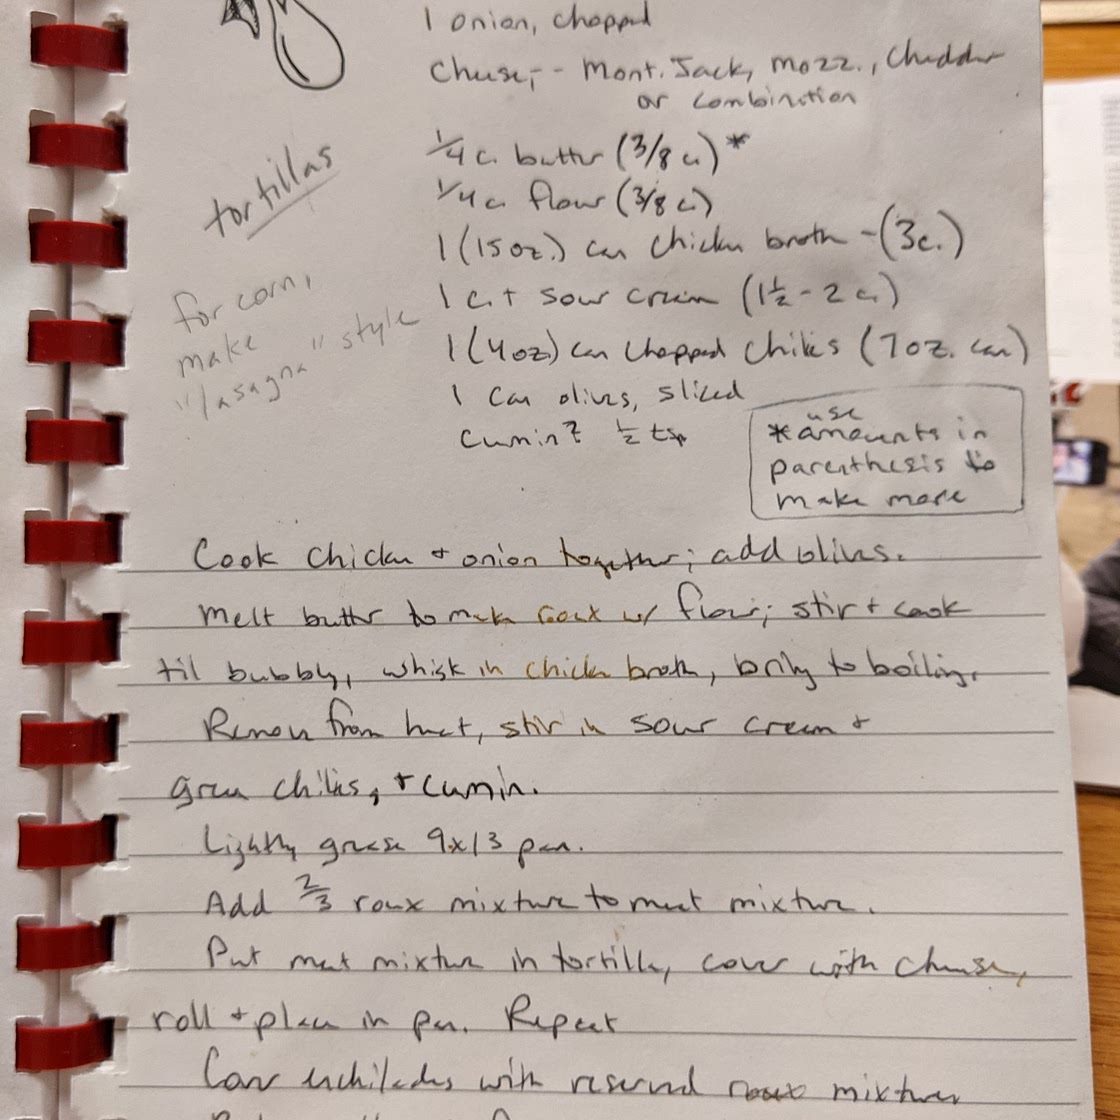 1 onion, chopped
Cheese, -- Mont. Jack, mozz., Cheddar
or combination
1/4 c. butter (3/8 c.) *
1/4 c. flour (3/8 c.)
1 (15 oz.) can chicken broth - (3c.)
1 c. + sour cream (1 1/2 - 2 c.)
1 (4 oz) can chopped chiles (7 oz. can)
1 can olives, sliced
cumin? 1/2 tsp
tortillas
for corn,
make
"lasagna" style
use
* amounts in
parenthesis to
make more
Cook chicken + onion together; add olives.
Melt butter to make roux w/ flour; stir + cook
til bubbly, whisk in chicken broth, bring to boiling.
Remove from heat, stir in sour cream +
green chiles, + cumin.
Lightly grease 9x13 pan.
Add 2/3 roux mixture to meat mixture.
Put meat mixture in tortilla, cover with cheese,
roll + place in pan. Repeat
Cover enchiladas with reserved roux mixture